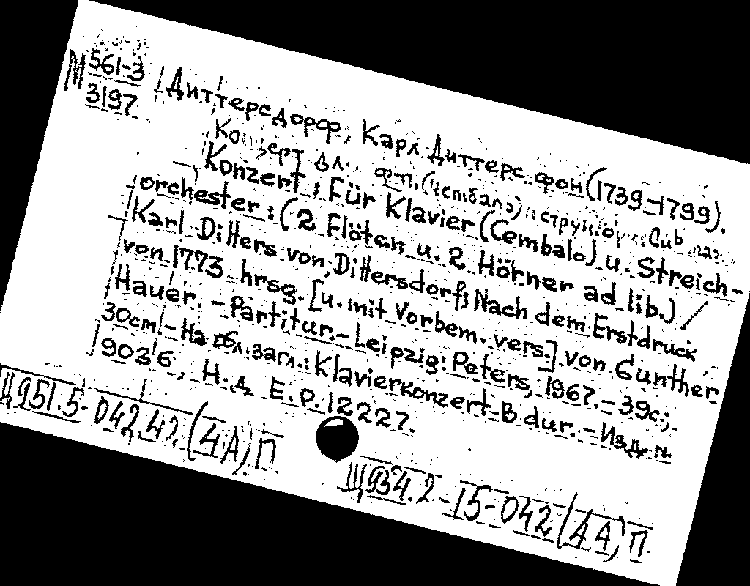 М 561-3
3197
Диттерсдорф, Карл Диттерс фон (1739-1799).
Концерт дл. фп. (чембало)
Konzert: Für Klavier (Cembalo) u. Streich-
orchester: (2 Flöten u. 2 Hörner ad lib.) /
Karl Ditters von Dittersdorf; Nach dem Erstdruck
von 1773 hrsg. [u. mit Vorbem. vers.] von Gunther
Hauer. - Partitur. - Leipzig: Peters, 1967. - 39с.;
30cm. - На обл. загл.: Klavierkonzert B dur. - Изд. н.
9036, Н.д. E.P. 12227.
Щ951.5-042.42(4А)П
Щ934.2-15-042(4А)П